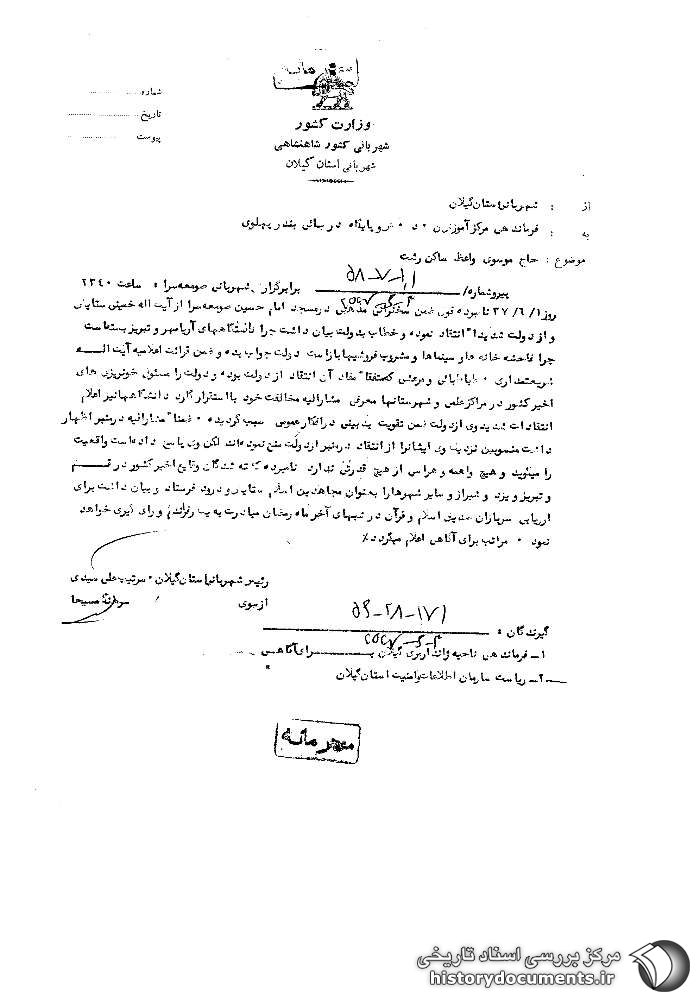 محرمانه
وزارت کشور
شهربانی کشور شاهنشاهی
شهربانی استان گیلان
شماره
تاریخ
پیوست
از : شهربانی استان گیلان
به : فرماندهی مرکز آموزش و پایگاه دریائی بندر پهلوی
موضوع : حاج موسوی واعظ ساکن رشت
پیرو شماره / برابر گزارش شهربانی صومعه سرا ساعت ۲۳۴۰
روز ۶/۱/ ۳۷ نامبرده فوق ضمن سخنرانی مذهبی در مسجد امام حسین صومعه سرا از آیت اله خمینی ستایش
و از دولت شدیدا" انتقاد نموده و خطاب بدولت بیان داشت چرا دانشگاههای آریامهر و تبریز بسته است
چرا فاحشه خانه ها و سینماها و مشروب فروشیها باز است دولت جواب بده و ضمن قرائت اعلامیه آیت اله
شریعتمداری طباطبائی و مرعشی که متفقا" مفاد آن انتقاد از دولت بوده و دولت را مسئول خونریزی های
اخیر کشور در مراکز علمی و شهرستانها معرفی مشارالیه مخالفت خود با استقرار گارد دانشگاهها نیز اعلام
انتقادات شدید وی از دولت ضمن تقویت بدبینی در افکار عمومی سبب گردیده ضمنا" مشارالیه در منبر اظهار
داشت منسوبین نزدیک وی ایشانرا از انتقاد در منبر از دولت منع نموده اند لکن وی پاسخ داده است واقعیت
را میگوید و هیچ واهمه و هراسی از هیچ قدرتی ندارد نامبرده کشته شدگان وقایع اخیر کشور در قم
و تبریز و یزد و شیراز و سایر شهرها را به عنوان مجاهدین اسلام ستایش و درود فرستاد و بیان داشت برای
ارزیابی سربازان صدیق اسلام و قرآن در شبهای آخر ماه رمضان مبادرت به یک رفراندم و رای گیری خواهد
نمود مراتب برای آگاهی اعلام میگردد٪
رئیس شهربانی استان گیلان سرتیپ علی سیدی
از سوی
گیرندگان :
۱ــ فرماندهی ناحیه ژاندارمری گیلان برای آگاهی
۲ــ ریاست سازمان اطلاعات و امنیت استان گیلان
محرمانه
مرکز بررسی اسناد تاریخی
historydocuments.ir